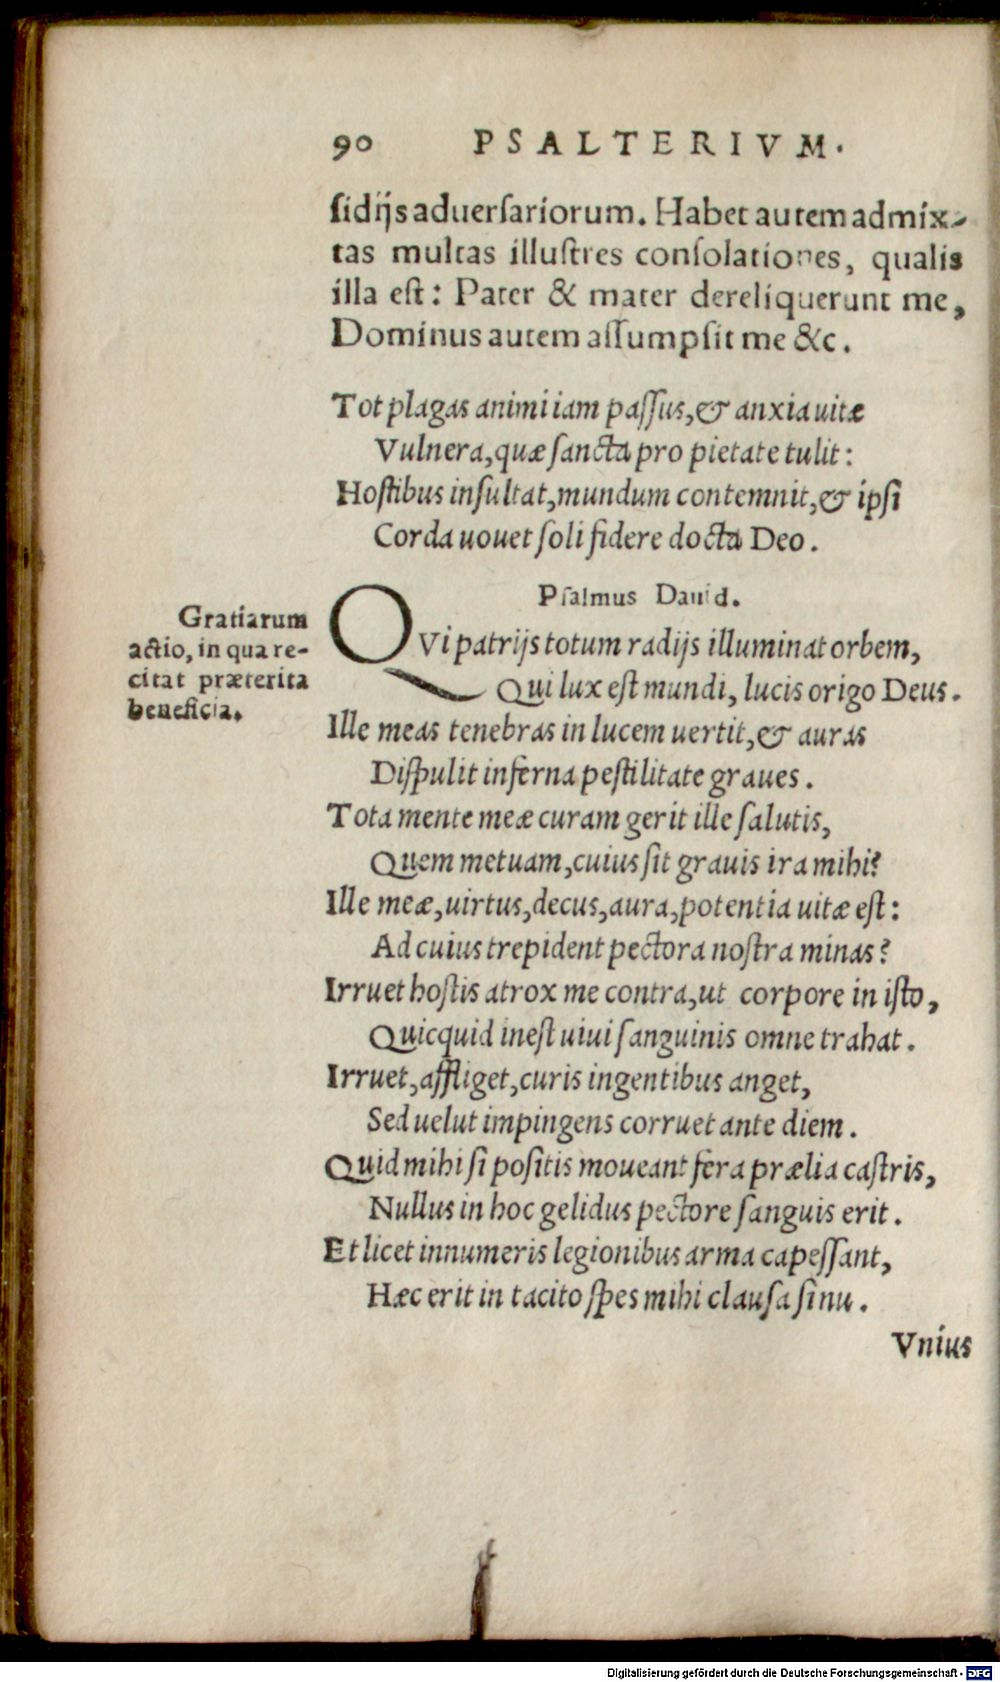 90 PSALTERIVM.
ſidijs aduerſariorum. Habet autem admix-
tas multas illuſtres conſolationes, qualis
illa eſt: Pater & mater dereliquerunt me,
Dominus autem aſſumpſit me &c.
Tot plagas animi iam paſſus, & anxia uitæ
Vulnera, quæ ſancta pro pietate tulit:
Hoſtibus inſultat, mundum contemnit, & ipſi
Corda uouet ſoli fidere docta Deo.
Pſalmus Dauid.
Gratiarum
actio, in qua re-
citat præterita
beneficia.
QVi patrijs totum radijs illuminat orbem,
Qui lux eſt mundi, lucis origo Deus.
Ille meas tenebras in lucem uertit, & auras
Diſpulit inferna peſtilitate graues.
Tota mente meæ curam gerit ille ſalutis,
Quem metuam, cuius ſit grauis ira mihi?
Ille meæ, uirtus, decus, aura, potentia uitæ eſt:
Ad cuius trepident pectora noſtra minas?
Irruet hoſtis atrox me contra, ut corpore in iſto,
Quicquid ineſt uiui ſanguinis omne trahat.
Irruet, affliget, curis ingentibus anget,
Sed uelut impingens corruet ante diem.
Quid mihi ſi poſitis moueant fera prælia caſtris,
Nullus in hoc gelidus pectore ſanguis erit.
Et licet innumeris legionibus arma capeſſant,
Hæc erit in tacito ſpes mihi clauſa ſinu.
Vnius
Digitalisierung gefördert durch die Deutsche Forschungsgemeinschaft - DFG